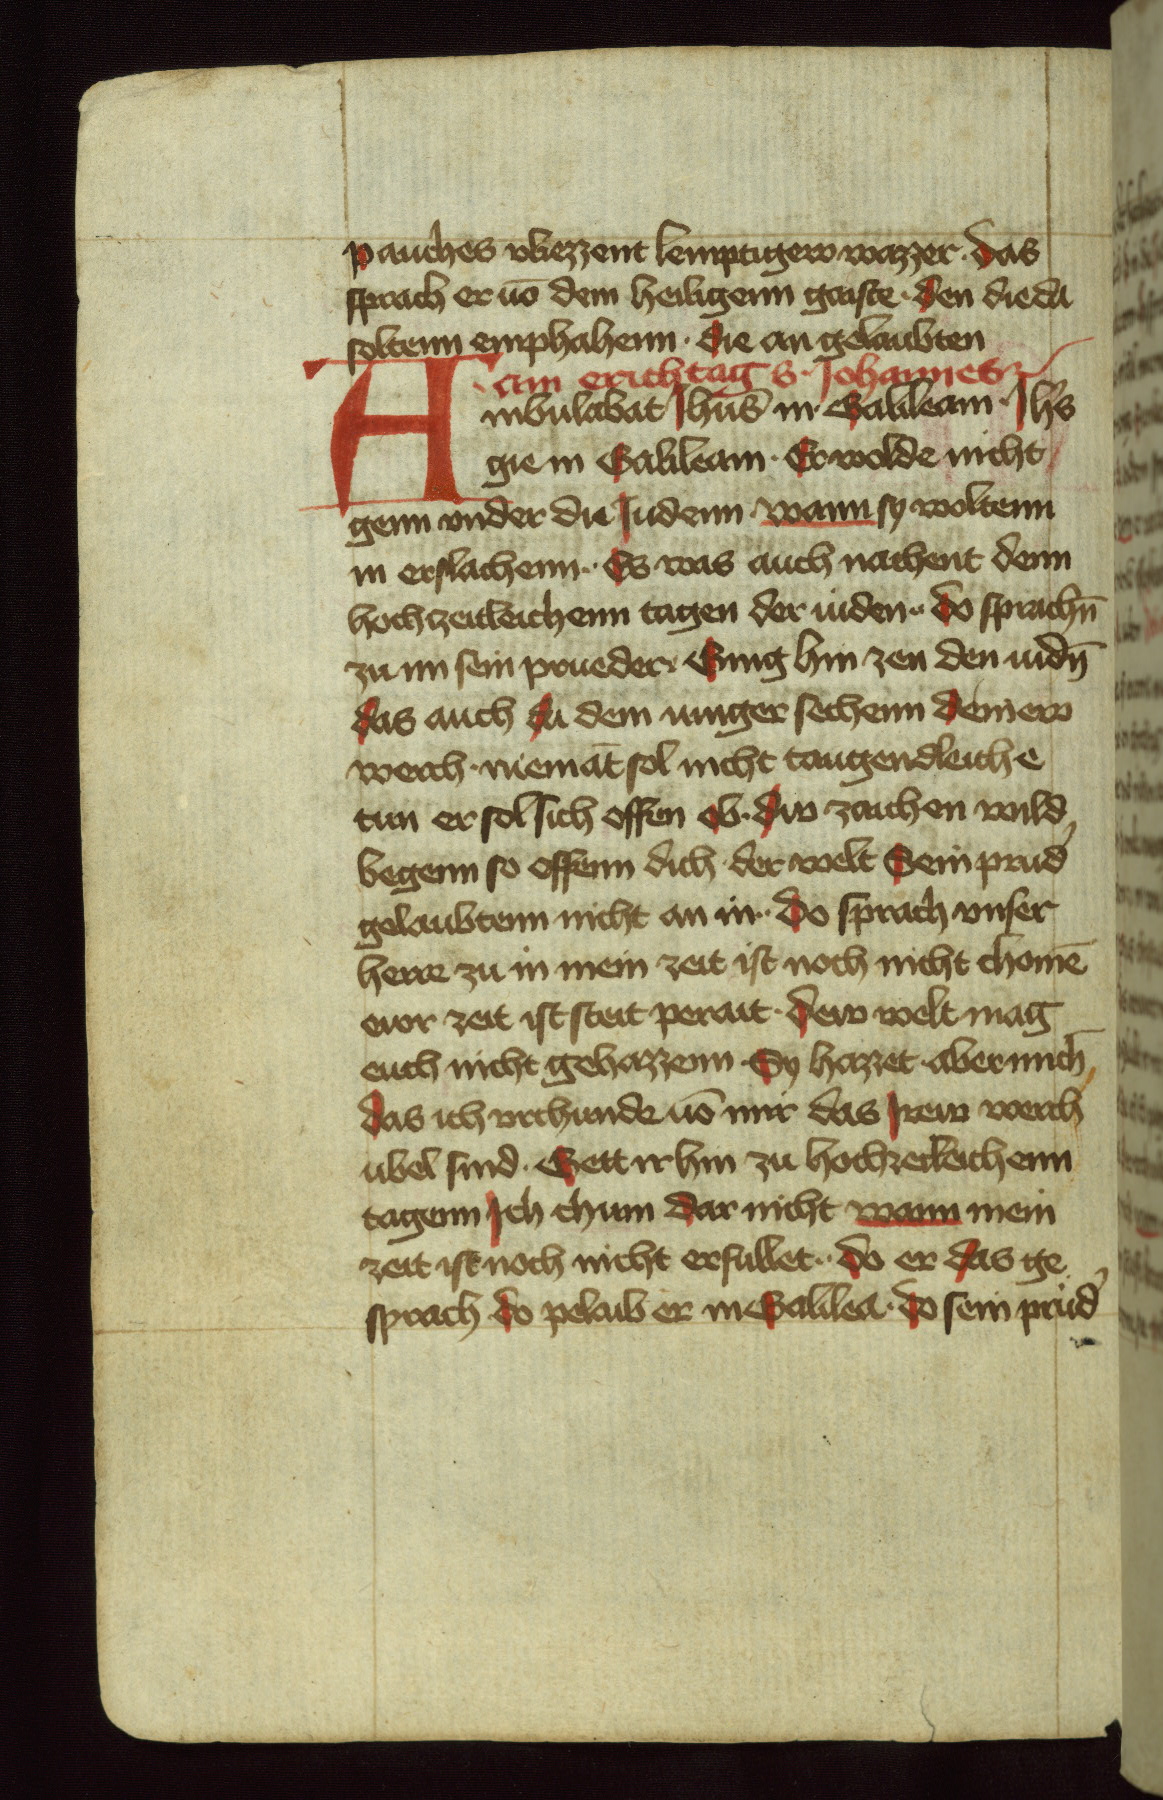 pauches vliezzent lemptigew wazzer · das
sprach er uō dem heiligenn gaiste · den die da
soltenn emphahenn · die an gelaubten
· am erichtag · s · Johannes
Ambulabat Jhūs in Galileam · Jhs
gie in Galileam · Er wolde nicht
genn vnder die Judenn · wann sy woltenn
in erslachenn · Es was auch nachent denn
hochzeitleichenn tagen der iuden · do sprachn̄
zu im sein prueder · Ging hin zen den iudn̄
das auch da dein iunger sechenn deinew
werch · niemāt sol nicht taugendleiche
tun er sol sich offen ob · dw zaichen wild
begenn so offenn dich · der welt Sein prud
gelaubtenn nicht an in · do sprach vnser
herre zu in mein zeit ist noch nicht chomē
ewr zeit ist steit perait · dew welt mag
euch nicht gehazzenn · Sy hazzet · aber mich
das ich vrchunde uō mir das Jrew werch
ubel sind · Gett ir hin zu hochzeileichenn
tagenn Jch chum dar nicht wann mein
zeit ist noch nicht erfullet · do er das ge
sprach do pelaib er in Galilea · do sein prud